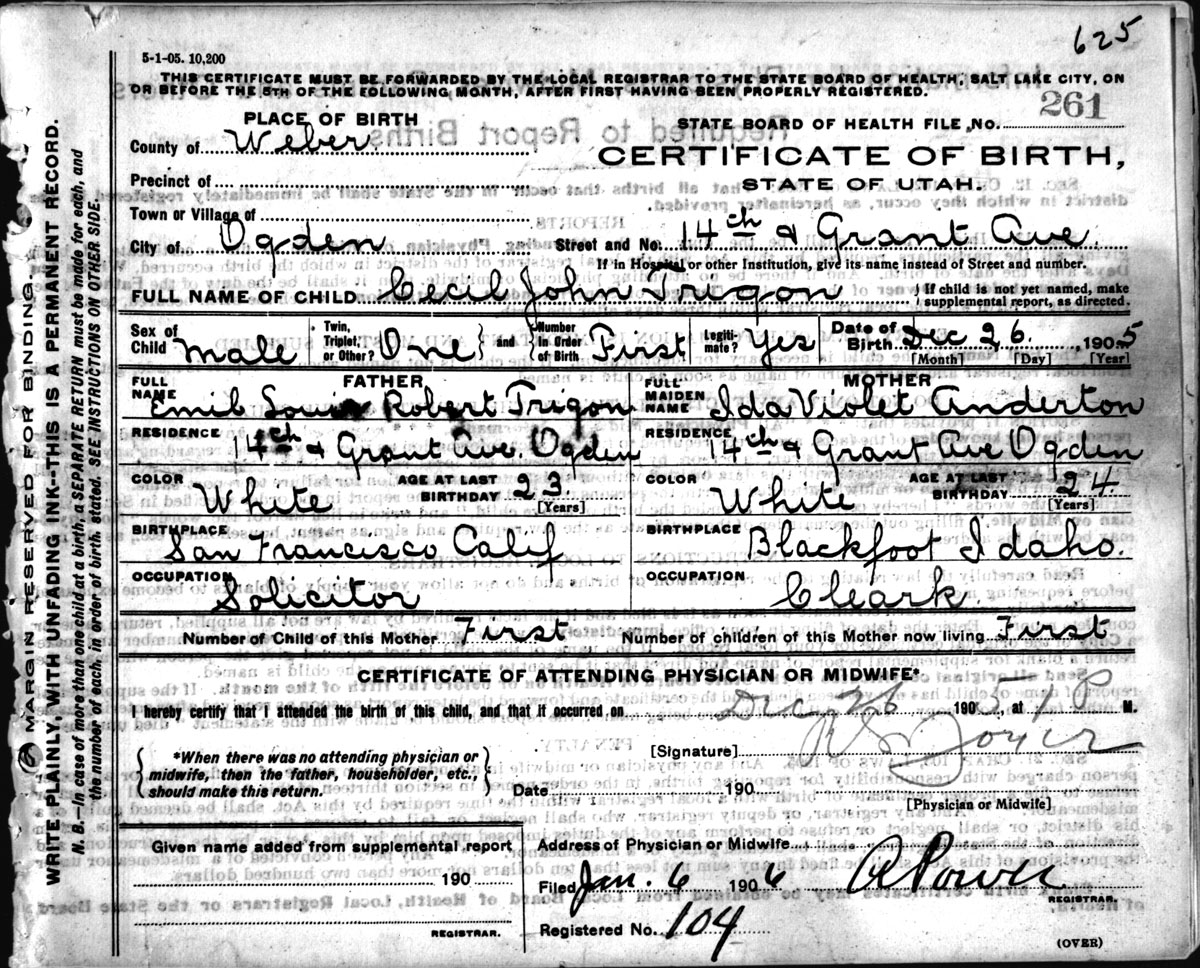 625
5-1-05. 10,200
THIS CERTIFICATE MUST BE FORWARDED BY THE LOCAL REGISTRAR TO THE STATE BOARD OF HEALTH, SALT LAKE CITY, ON
OR BEFORE THE 5TH OF THE FOLLOWING MONTH, AFTER FIRST HAVING BEEN PROPERLY REGISTERED.
PLACE OF BIRTH
STATE BOARD OF HEALTH FILE NO. 261
County of Weber
CERTIFICATE OF BIRTH,
Precinct of
STATE OF UTAH.
Town or Village of
City of Ogden Street and No. 14th & Grant Ave.
If in Hospital or other Institution, give its name instead of Street and number.
FULL NAME OF CHILD Cecil John Trigon { If child is not yet named, make supplemental report, as directed.
Sex of Child Male Twin, Triplet, or Other? One } and { Number in Order of Birth First Legitimate? Yes Date of Birth Dec 26, 1905
[Month] [Day] [Year]
FATHER MOTHER
FULL NAME Emil Louis Robert Trigon FULL MAIDEN NAME Ida Violet Anderton
RESIDENCE 14th & Grant Ave. Ogden RESIDENCE 14th & Grant Ave Ogden
COLOR White AGE AT LAST BIRTHDAY 23 [Years] COLOR White AGE AT LAST BIRTHDAY 24 [Years]
BIRTHPLACE San Francisco Calif BIRTHPLACE Blackfoot Idaho.
OCCUPATION Solicitor OCCUPATION Cleark.
Number of Child of this Mother First Number of children of this Mother now living First
CERTIFICATE OF ATTENDING PHYSICIAN OR MIDWIFE*
I hereby certify that I attended the birth of this child, and that it occurred on Dec 26 1905, at 7 P M.
*When there was no attending physician or
midwife, then the father, householder, etc.,
should make this return.
[Signature]
Date 190
[Physician or Midwife]
Given name added from supplemental report
190
REGISTRAR.
Address of Physician or Midwife
Filed Jan. 6 1906
REGISTRAR.
Registered No. 104
(OVER)
MARGIN RESERVED FOR BINDING.
WRITE PLAINLY, WITH UNFADING INK—THIS IS A PERMANENT RECORD.
N. B.—In case of more than one child at a birth, a SEPARATE RETURN must be made for each, and
the number of each, in order of birth, stated. SEE INSTRUCTIONS ON OTHER SIDE.